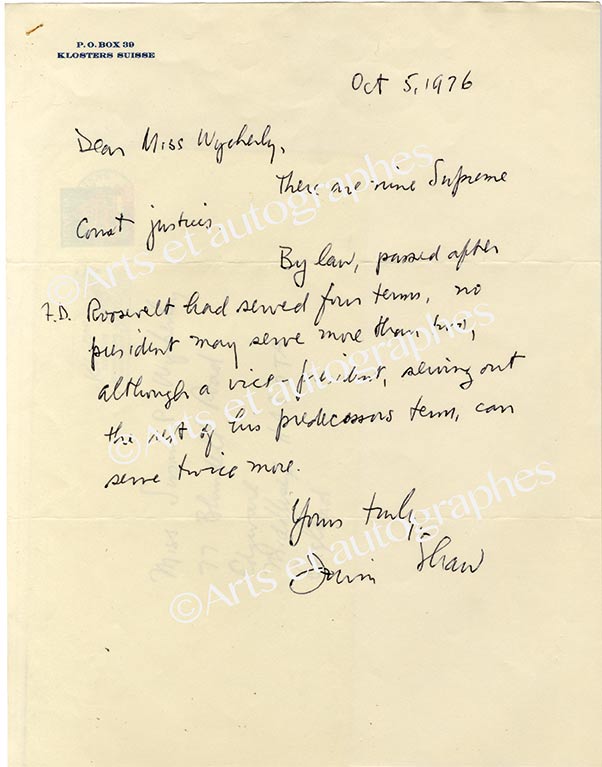 P.O. BOX 39
KLOSTERS SUISSE
Oct 5, 1976
Dear Miss Wycherly,
There are nine Supreme
Court justices.
By law, passed after
F.D. Roosevelt had served four terms, no
president may serve more than two,
although a vice-president, serving out
the rest of his predecessors term, can
serve twice more.
Yours truly,
Irwin Shaw
©Arts et autographes
©Arts et autographes
©Arts et autographes